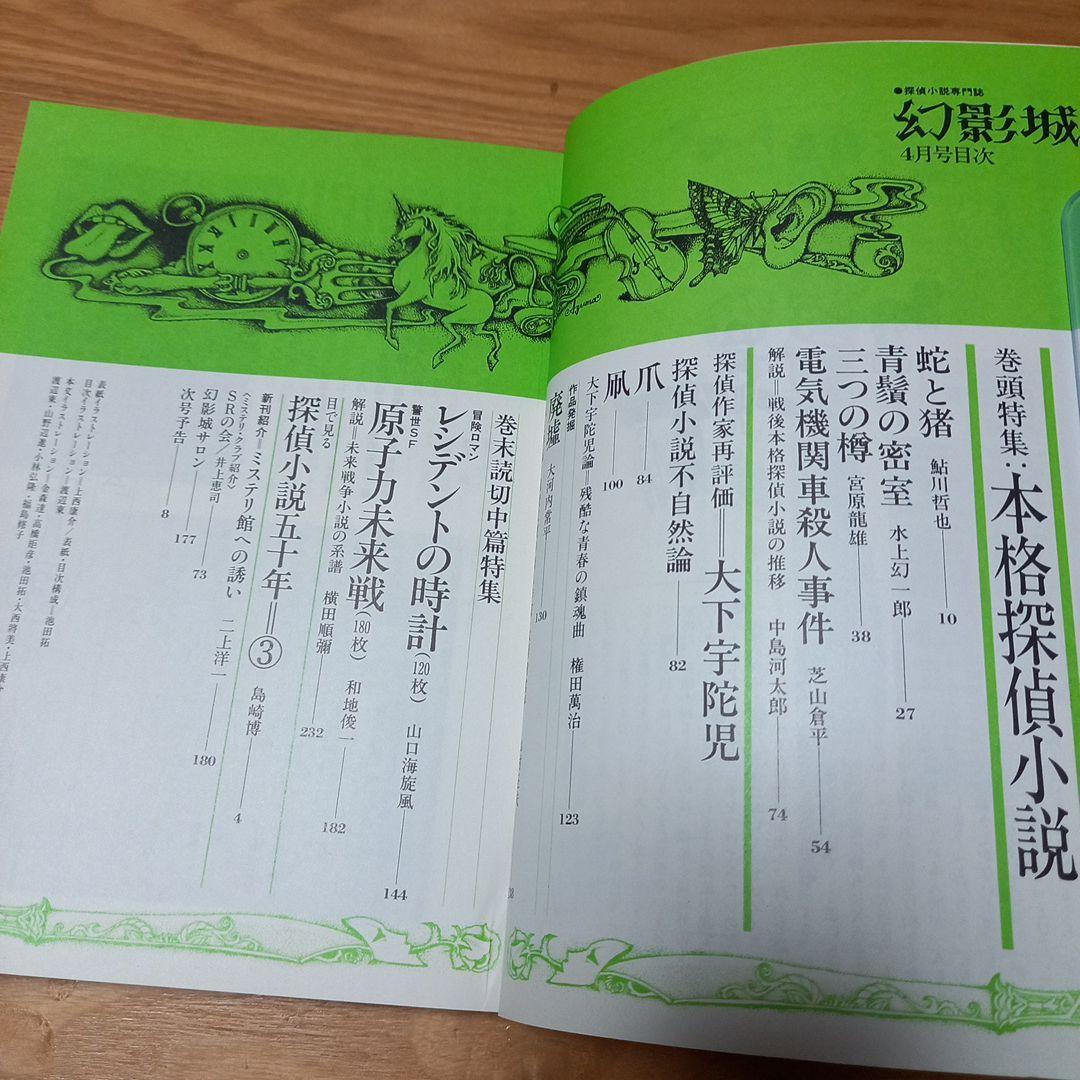 ●探偵小説専門誌
幻影城
4月号目次
巻頭特集:本格探偵小説
蛇と猪 鮎川哲也 10
青鬚の密室 水上幻一郎 27
三つの樽 宮原龍雄 38
電気機関車殺人事件 芝山倉平 54
解説=戦後本格探偵小説の推移 中島河太郎 74
探偵作家再評価=大下宇陀児
探偵小説不自然論 82
爪 84
凧 100
大下宇陀児論=残酷な青春の鎮魂曲 権田萬治 123
作品発掘
廃墟 大河内常平 130
巻末読切中篇特集
冒険ロマン
レシデントの時計(120枚) 山口海旋風 144
警世SF
原子力未来戦(180枚) 和地俊一 182
解説=未来戦争小説の系譜 横田順彌 232
目で見る
探偵小説五十年=③ 島崎博 4
新刊紹介=ミステリ館への誘い 二上洋一 180
〈ミステリ・クラブ紹介〉
SRの会/井上恵司 73
幻影城サロン 177
次号予告 8
表紙イラストレーション=上西康介/表紙・目次構成=池田拓
目次イラストレーション=渡辺東
本文イラストレーション=金森達・高橋矩彦・池田拓・大西將美・上西康介
渡辺東・山野辺進・小林弘隆・福島修子
Azuma